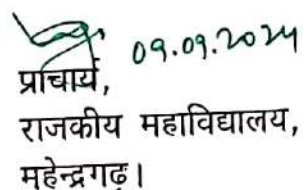 09.09.2024
प्राचार्य,
राजकीय महाविद्यालय,
महेन्द्रगढ़।